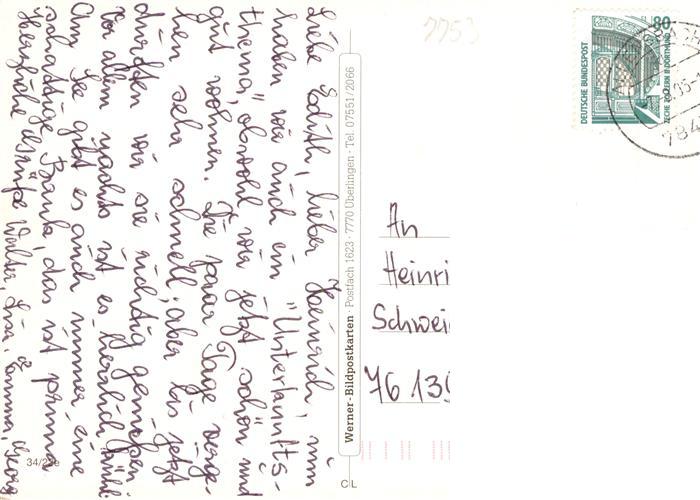 Liebe Edith, lieber Heinrich, nun
haben wir auch ein "Unterkünfts-
thema", obwohl wir jetzt schön und
gut wohnen. Die paar Tage verge-
hen sehr schnell, aber bis jetzt
durften wir sie richtig genießen
vor allem nachts ist es herrlich kühl
Am See gibt es auch immer eine
schattige Bank, das ist prima
Herzliche Grüße Walter, Lisa, Emma, Georg
34/22e
Werner-Bildpostkarten · Postfach 1623 · 7770 Überlingen · Tel. 07551/2066
C L
7753
DEUTSCHE BUNDESPOST
80
ZECHE ZOLLERN II DORTMUND
784
An
Heinri
Schwei
76 139